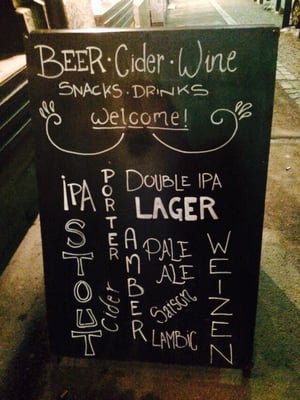 BEER · Cider · Wine
SNACKS · DRINKS
welcome!
iPA
STOUT
PORTER
Cider
DOUBLE IPA
LAGER
AMBER
PALE
ALE
Saison
LAMBIC
WEIZEN